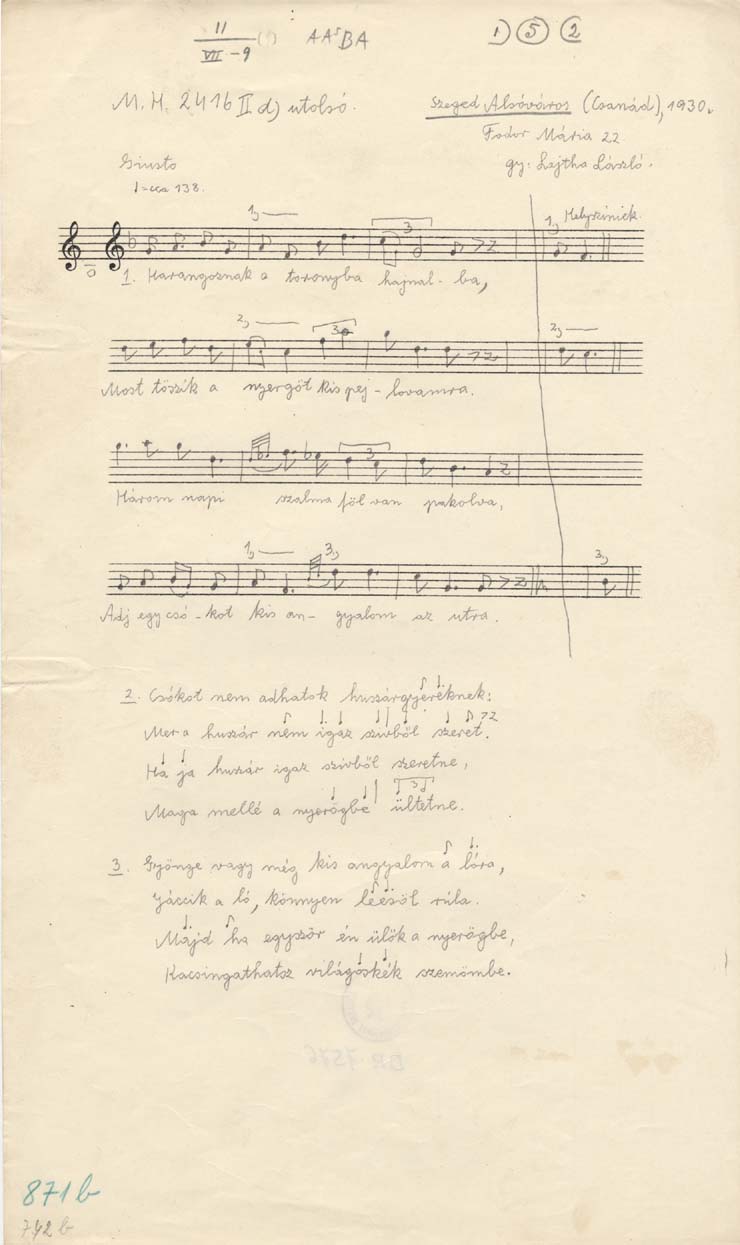 11
VII - 9
A A⁵ B A
1) 5 2
M. H. 2416 II d) utolsó.
Szeged Alsóváros (Csanád), 1930.
Fodor Mária 22
gy: Lajtha László.
Giusto
♩=cca 138.
1, 3 1, Helyszínick.
1. Harangoznak a toronyba hajnal- ba,
2, 3 2,
Most töszik a nyergöt kis pej- lovamra.
3
Három napi szalma föl van pakolva,
1, 3, 3,
Adj egy csó-kot kis an- gyalom az utra.
2. Csókot nem adhatok huszárgyeréknek:
Mer a huszár nem igaz szivből szeret.
Ha ja huszár igaz szivből szeretne,
3
Maga mellé a nyerögbe ültetne.
3. Gyönge vagy még kis angyalom a lóra,
Jáccik a ló, könnyen léesöl rúla.
Majd ha egyször én ülök a nyerögbe,
Kacsingathatsz világoskék szemömbe.
871 b
742 b